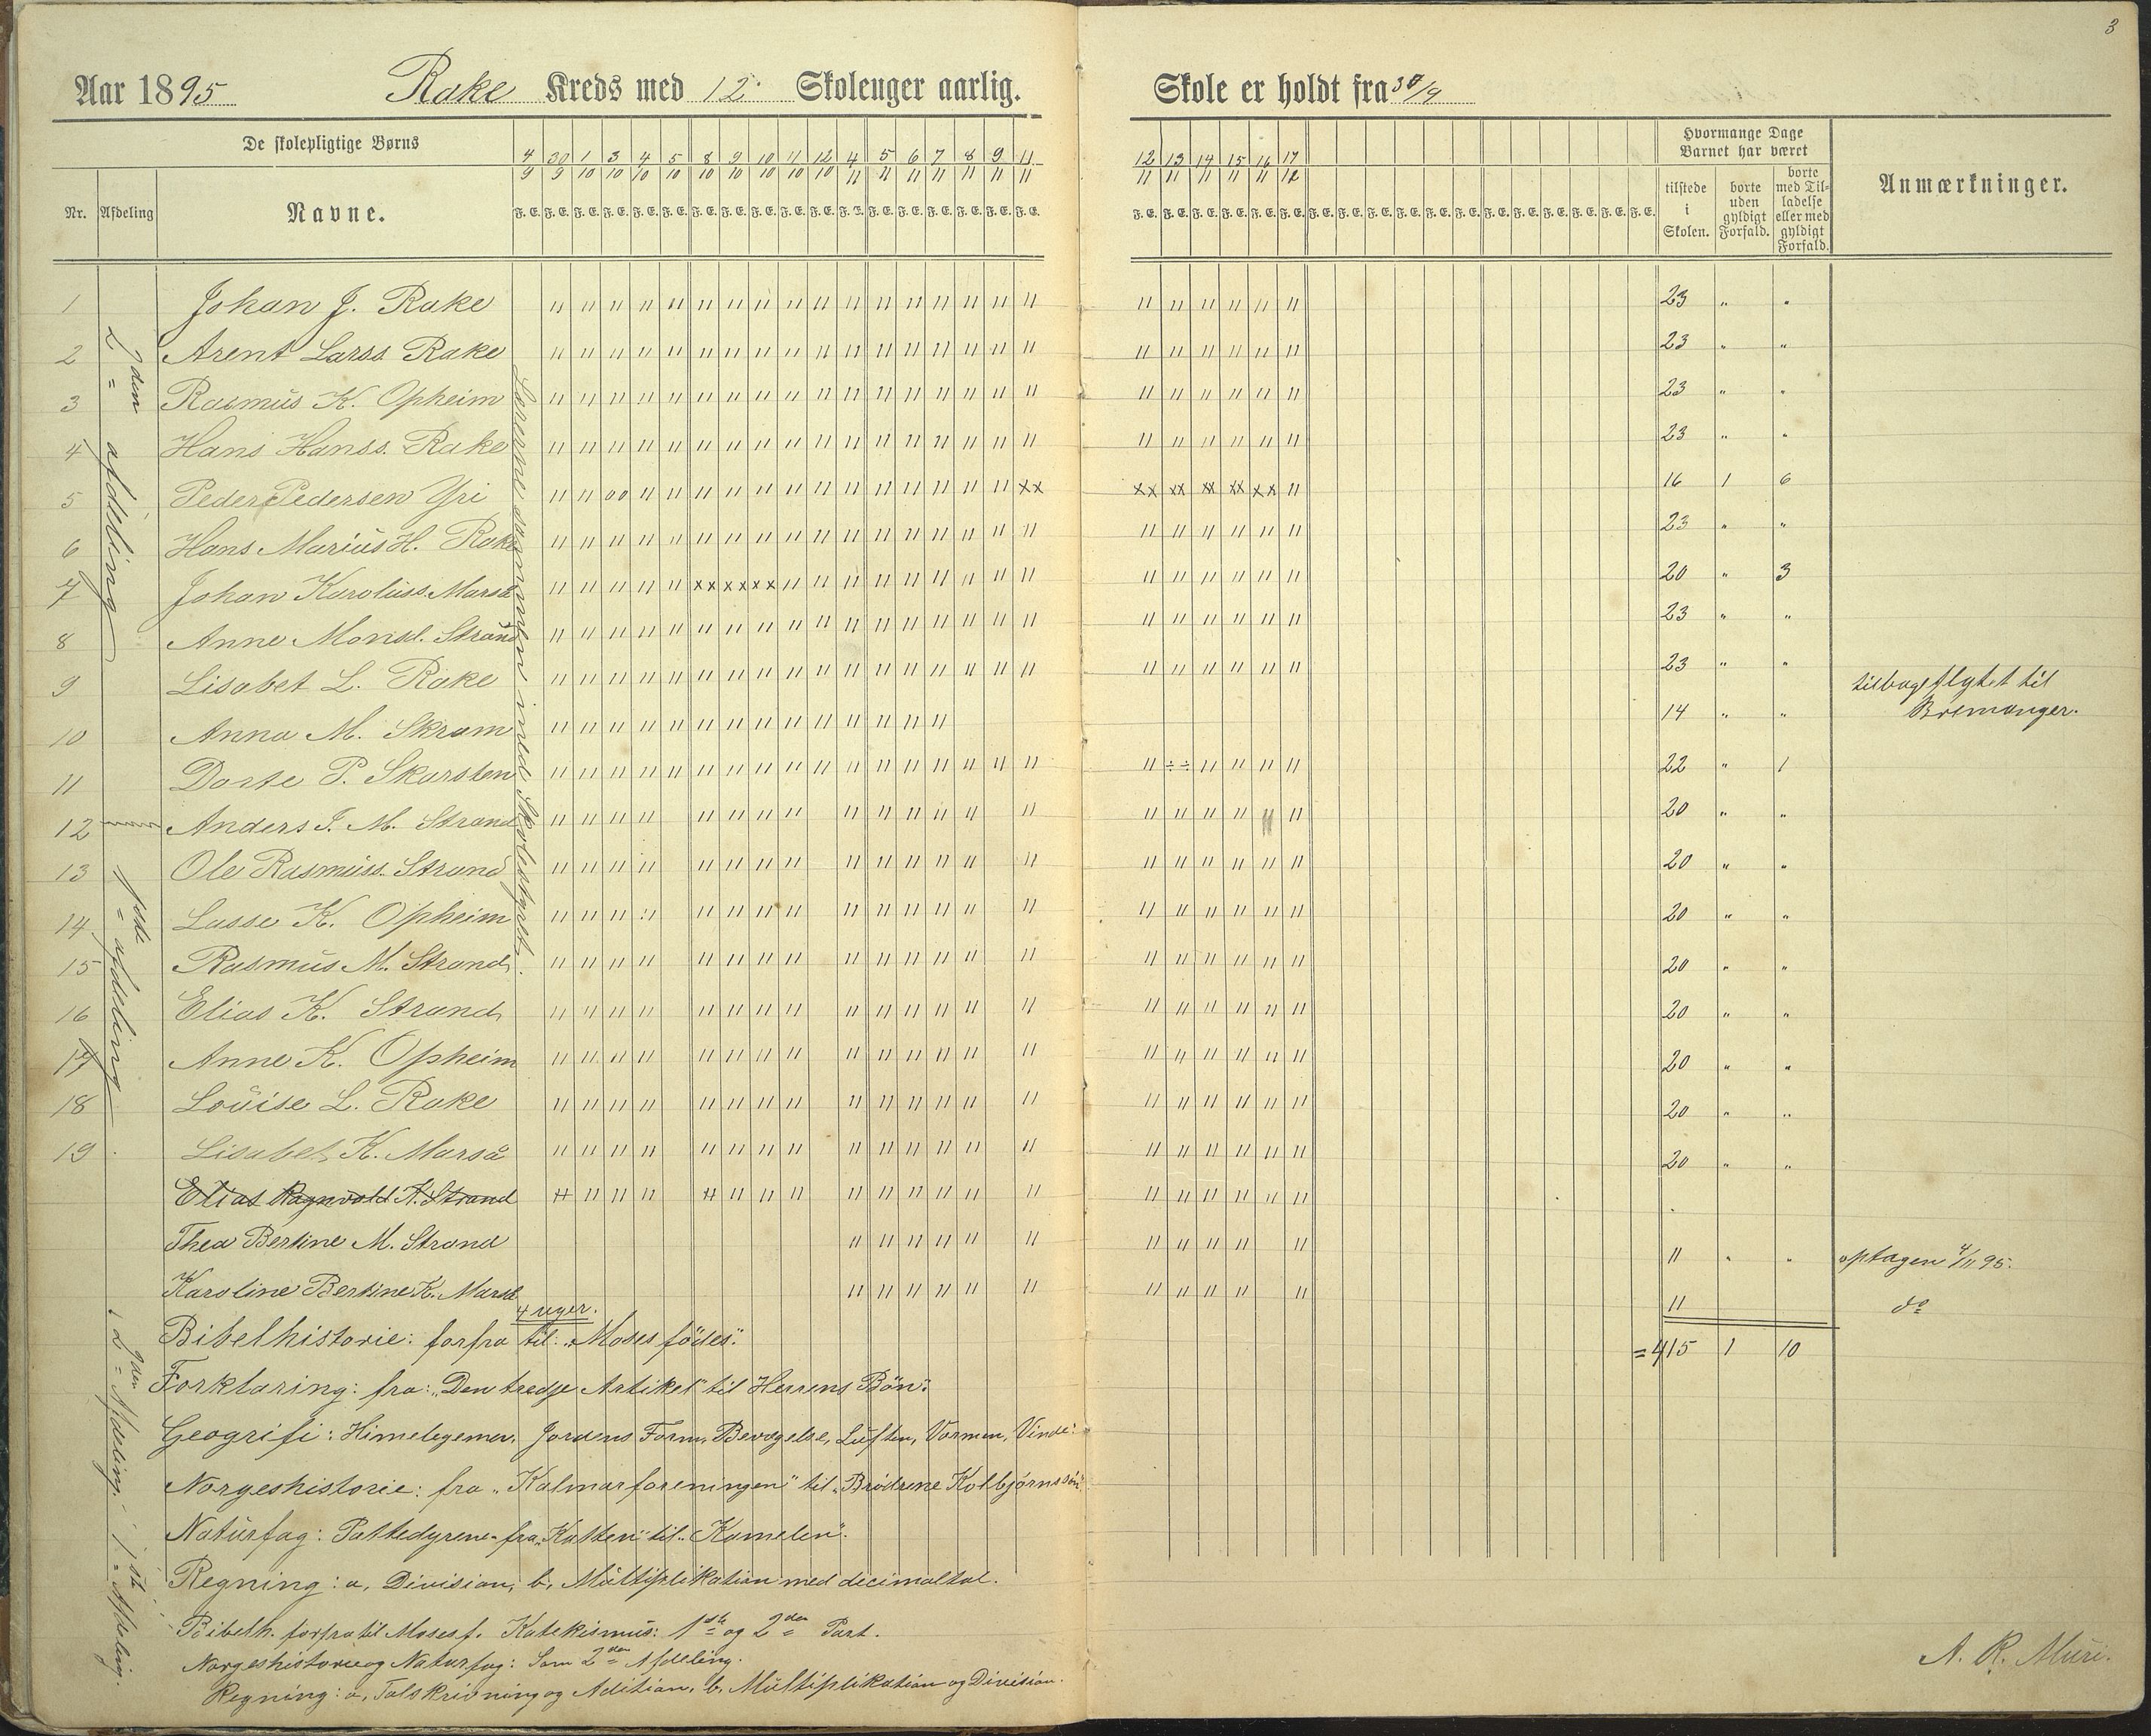 3
Aar 1895 Rake Kreds med 12 Skoleuger aarlig. Skole er holdt fra 30/9
De skolepligtige Børns
Nr. Afdeling Navne.
4/9 30/9 1/10 3/10 4/10 5/10 8/10 9/10 10/10 11/10 12/10 4/11 5/11 6/11 7/11 8/11 9/11 11/11 12/11 13/11 14/11 15/11 16/11 17/12
F. E. F. E. F. E. F. E. F. E. F. E. F. E. F. E. F. E. F. E. F. E. F. E. F. E. F. E. F. E. F. E. F. E. F. E.
Hvormange Dage Barnet har været
tilstede i Skolen. borte uden gyldigt Forfald. borte med Tilladelse eller med gyldigt Forfald.
Anmærkninger.
2den afdeling
1ste afdeling
sammen med Skolestyret.
1 Johan J. Rake 23 " "
2 Arent Larss Rake 23 " "
3 Rasmus K. Opheim 23 " "
4 Hans Hanss. Rake 23 " "
5 Peder Pedersen Yri 16 1 6
6 Hans Marius H. Rake 23 " "
7 Johan Karoluss. Marså 20 " 3
8 Anne Monsd. Strand 23 " "
9 Lisabet L. Rake 23 " "
10 Anna M. Skram 14 " " tilbageflytet til Bremanger.
11 Dorte P. Skarsten 22 " 1
12 Anders J. M. Strand 20 " "
13 Ole Rasmuss. Strand 20 " "
14 Lasse K. Opheim 20 " "
15 Rasmus M. Strand 20 " "
16 Elias K. Strand 20 " "
17 Anne K. Opheim 20 " "
18 Louise L. Rake 20 " "
19 Lisabet K. Marså 20 " "
Elias Ragnvald K. Strand
Thea Bertine M. Strand 11 " " optagen 4/11 95.
Karoline Bertine K. Marså 11 do
4 uger.
= 415 1 10
2den Afdeling.
Bibelhistorie: forfra til "Moses födes".
Forklaring: fra: "Den tredje Artikel" til Herrens Bön".
Geogrifi: Himelegemer, Jordens Form, Bevægelse, Luften, Varmen, Vinde.
Norgeshistorie: fra "Kalmarforeningen" til "Brödrene Kolbjörnssön"
Naturfag: Pattedyrene fra "Katten" til "Kamelen".
Regning: a, Division, b, Multiplikation med decimaltal.
1ste Afdeling.
Bibelh. forfra til Moses f. Katekismus: 1ste og 2den Part.
Norgeshistorie og Naturfag: Som 2den Afdeling.
Regning: a, Talskrivning og Adition, b, Multiplikation og Division.
A. R. Muri.